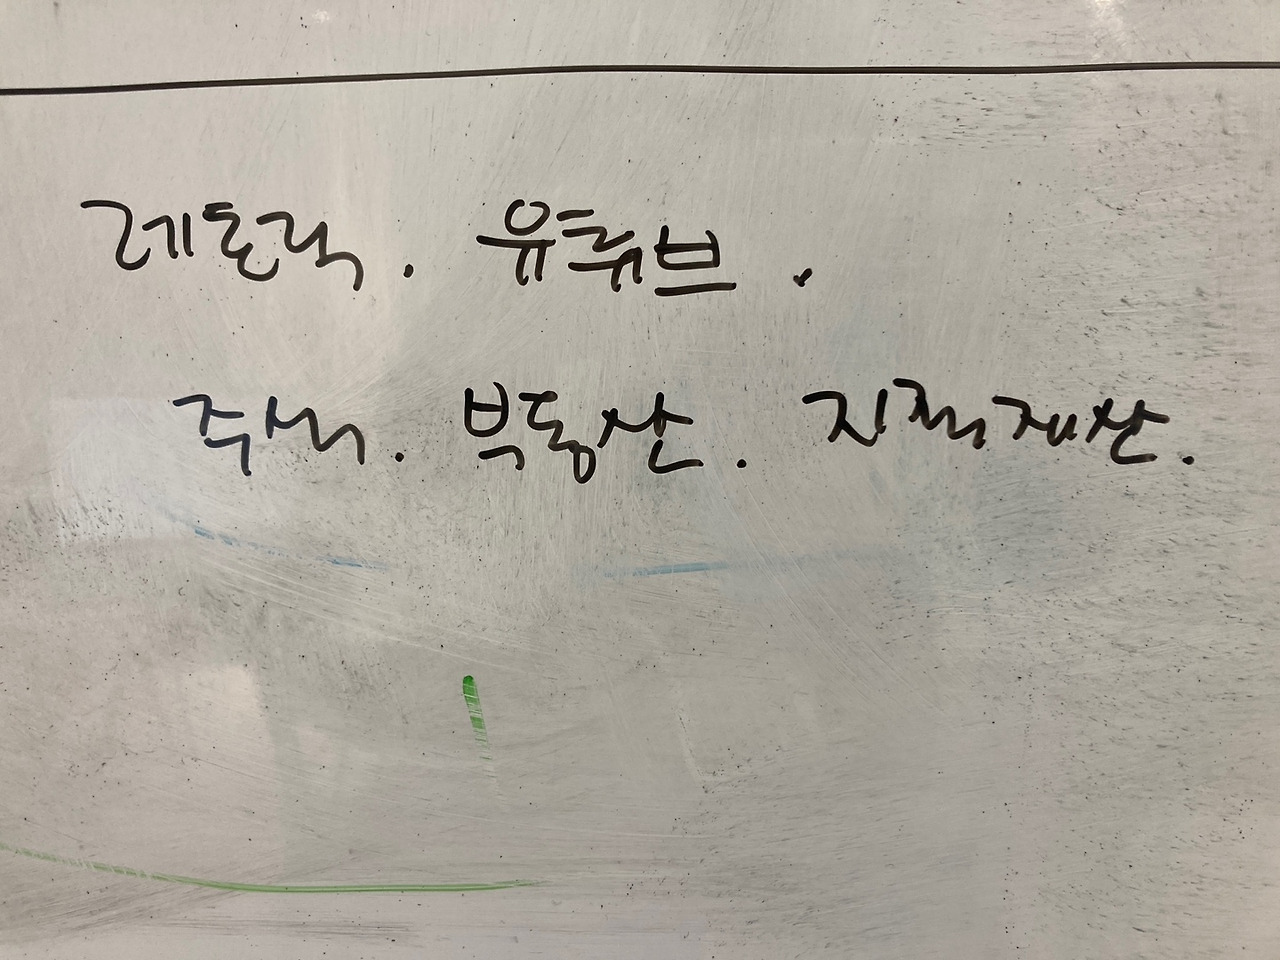 레토릭. 유튜브.
주식. 부동산. 지적재산.